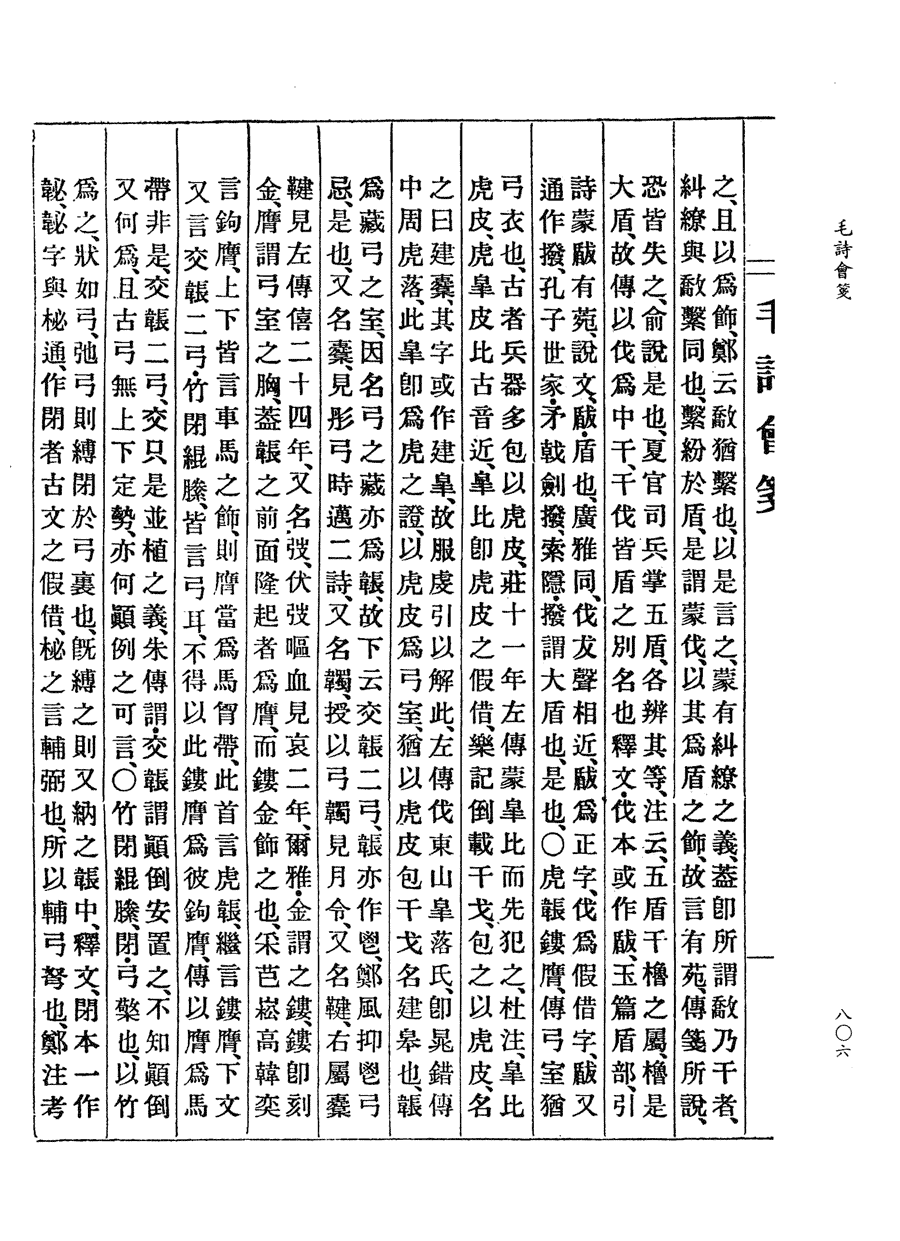 毛詩會箋
八〇六
毛詩會箋
之、且以爲飾、鄭云敽猶繫也、以是言之、蒙有糾繚之義、葢卽所謂敽乃干者、
糾繚與敽繫同也、繫紛於盾、是謂蒙伐、以其爲盾之飾、故言有苑、傳箋所說、
恐皆失之、俞說是也、夏官司兵掌五盾、各辨其等、注云、五盾干櫓之屬、櫓是
大盾、故傳以伐爲中干、干伐皆盾之別名也釋文・伐本或作瞂、玉篇盾部、引
詩蒙瞂有菀、說文、瞂・盾也、廣雅同、伐犮聲相近、瞂爲正字、伐爲假借字、瞂又
通作撥、孔子世家・矛戟劍撥、索隱・撥謂大盾也、是也、〇虎韔鏤膺、傳弓室猶
弓衣也、古者兵器多包以虎皮、莊十一年左傳蒙皐比而先犯之、杜注、皐比
虎皮、虎皐皮比古音近、皐比卽虎皮之假借、樂記倒載干戈、包之以虎皮、名
之曰建櫜、其字或作建皐、故服虔引以解此、左傳伐東山皐落氏、卽晁錯傳
中周虎落、此皐卽爲虎之證、以虎皮爲弓室、猶以虎皮包干戈名建皋也、韔
爲藏弓之室、因名弓之藏亦爲韔、故下云交韔二弓、韔亦作鬯、鄭風抑鬯弓
忌、是也、又名櫜、見彤弓時邁二詩、又名韣、授以弓韣見月令、又名鞬、右屬櫜
鞬見左傳僖二十四年、又名弢、伏弢嘔血見哀二年、爾雅・金謂之鏤、鏤卽刻
金、膺謂弓室之胸、葢韔之前面隆起者爲膺、而鏤金飾之也、采芑崧高韓奕
言鉤膺、上下皆言車馬之飾、則膺當爲馬胷帶、此首言虎韔、繼言鏤膺、下文
又言交韔二弓・竹閉緄縢、皆言弓耳、不得以此鏤膺爲彼鉤膺、傳以膺爲馬
帶非是、交韔二弓、交只是並植之義、朱傳謂・交韔謂顚倒安置之、不知顚倒
又何爲、且古弓無上下定勢、亦何顚例之可言、〇竹閉緄縢、閉・弓檠也、以竹
爲之、狀如弓、弛弓則縛閉於弓裏也、旣縛之則又納之韔中、釋文、閉本一作
䪐、䪐字與柲通、作閉者古文之假借、柲之言輔弼也、所以輔弓弩也、鄭注考